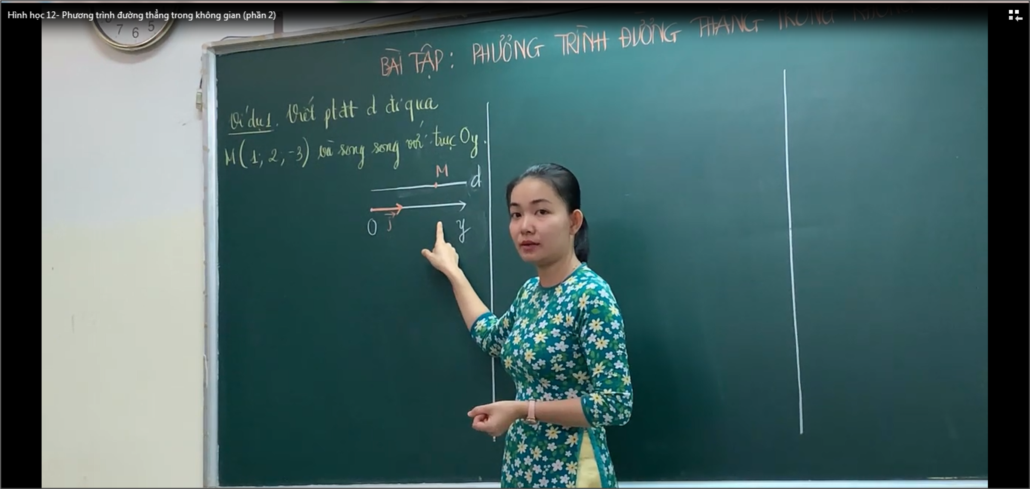 Hình học 12- Phương trình đường thẳng trong không gian (phần 2)
7 6 5
BÀI TẬP: PHƯƠNG TRÌNH ĐƯỜNG THẲNG TRONG
Ví dụ1. Viết ptđt d đi qua
M(1; 2; -3) và song song với trục Oy.
M
d
O j y